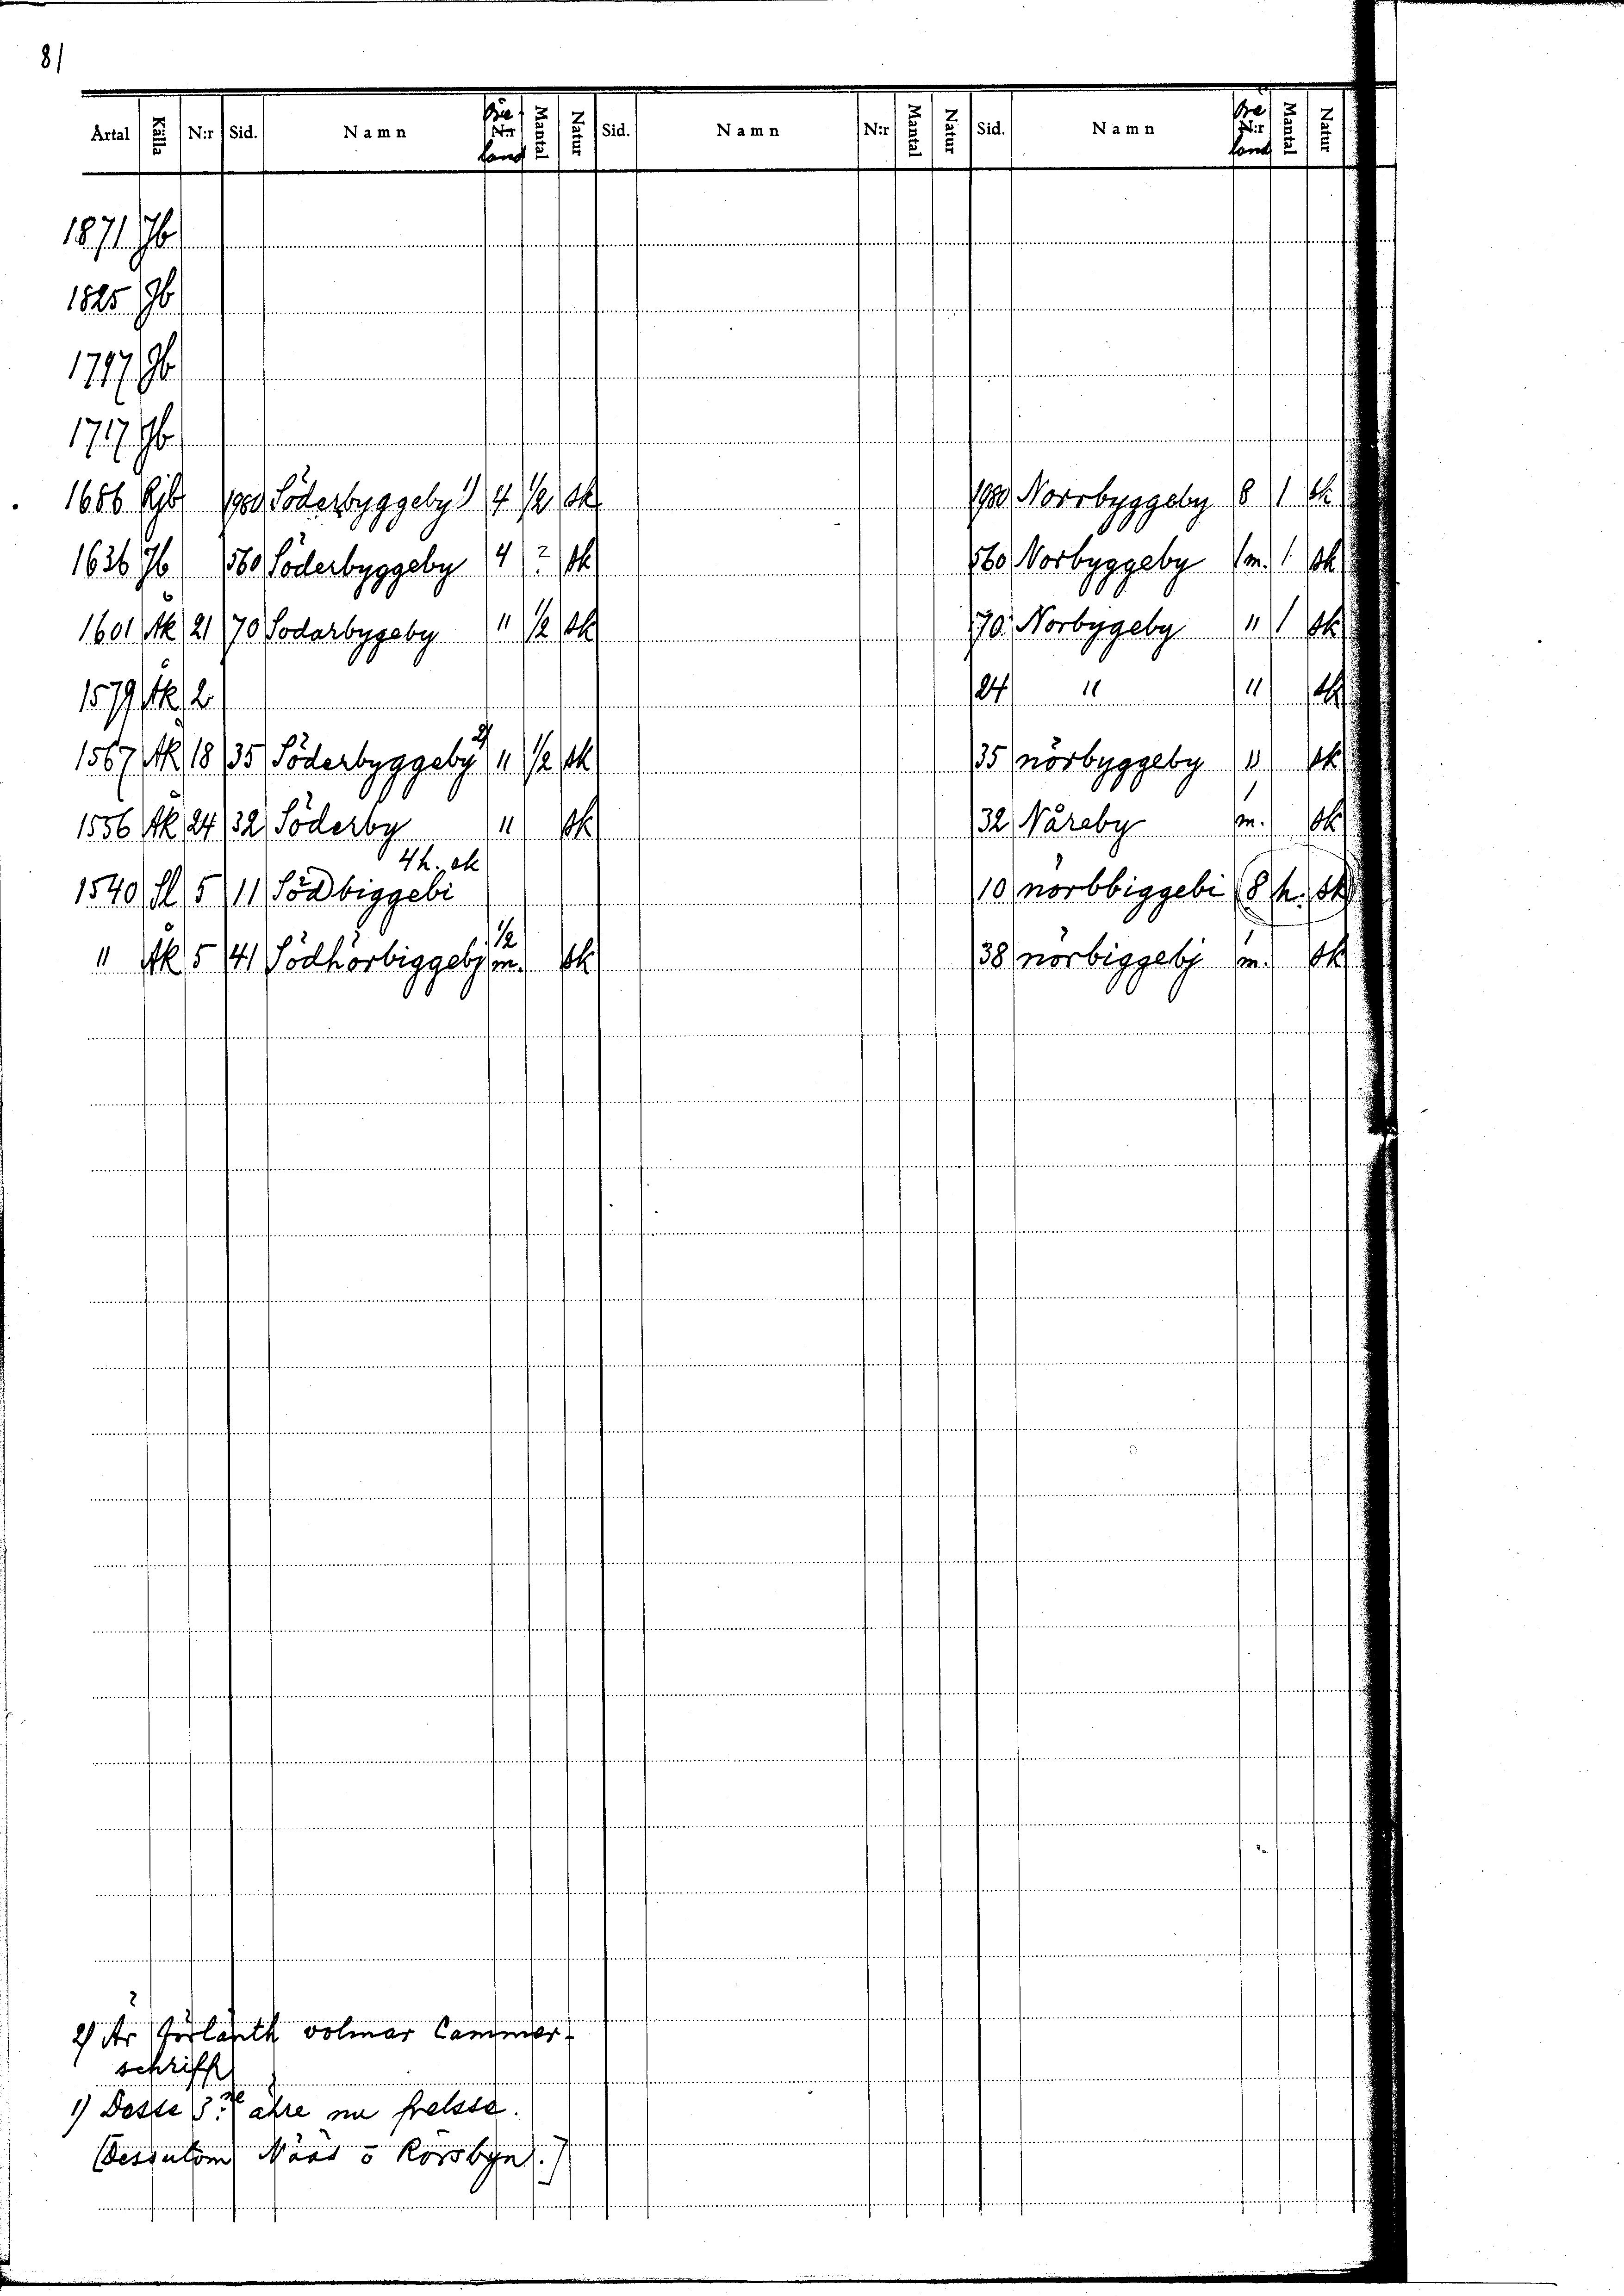 81
Årtal Källa N:r Sid. Namn Bre N:r land Mantal Natur Sid. Namn N:r Mantal Natur Sid. Namn Bre N:r land Mantal Natur
1871 Jb
1825 Jb
1747 Jb
1717 Jb
1686 Rjb 1980 Söderbyggeby 1) 4 1/2 sk 1980 Norrbyggeby 8 1 sk
1636 Jb 560 Söderbyggeby 4 ? sk 560 Norbyggeby 1 m. 1 sk
1601 Åk 21 70 Sodarbygeby " 1/2 sk 70 Norbygeby " 1 sk
1579 Åk 2 24 " " sk
1567 Åk 18 35 Söderbyggeby 2) " 1/2 sk 35 nörbyggeby " sk
1556 Åk 24 32 Söderby " sk 32 Nåreby 1 m. sk
4 h. sk
1540 Sl 5 11 Södbiggebi 10 nörbbiggebi (8 h. sk)
" Åk 5 41 Södhörbiggebj 1/2 m. sk 38 nörbiggebj 1 m. sk
2) Är förlänth volmar Cammer-
schriff
1) Desse 3:ne ähre nu frelsse.
[Dessutom Nääs o Rörsbyn.]